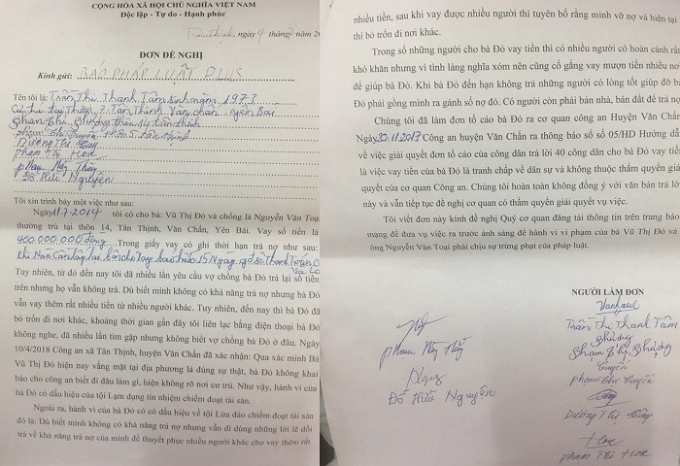 CỘNG HÒA XÃ HỘI CHỦ NGHĨA VIỆT NAM
Độc lập - Tự do - Hạnh phúc
ngày 4 tháng
ĐƠN ĐỀ NGHỊ
Kính gửi: BÁO PHÁP LUẬT PLUS
Tên tôi là: Trần Thị Thanh Tâm sinh năm 1973
Tân Thịnh, Văn Chấn, Yên Bái
Phạm Thị Phượng thôn 14 Tân Thịnh
Phạm Thị Tuyền thôn 5 Tân Thịnh
Dương Thị
Phạm Thị Hoa
Phạm Thúy
Đỗ Hữu Nguyện
Tôi xin trình bày một việc như sau:
Ngày 11.7.2014 tôi có cho bà: Vũ Thị Đỏ và chồng là Nguyễn Văn Toại
thường trú tại thôn 14, Tân Thịnh, Văn Chấn, Yên Bái. Vay số tiền là
400.000.000 đồng. Trong giấy vay có ghi thời hạn trả nợ như sau:
báo trước 15 ngày
Tuy nhiên, từ đó đến nay tôi đã nhiều lần yêu cầu vợ chồng bà Đỏ trả lại số tiền
trên nhưng họ vẫn không trả. Dù biết mình không có khả năng trả nợ nhưng bà Đỏ
vẫn vay thêm rất nhiều tiền từ nhiều người khác. Tuy nhiên, đến nay thì bà Đỏ đã
bỏ trốn đi nơi khác, khoảng thời gian gần đây tôi liên lạc bằng điện thoại bà Đỏ
không nghe, đã nhiều lần tìm gặp nhưng không biết vợ chồng bà Đỏ ở đâu. Ngày
10/4/2018 Công an xã Tân Thịnh, huyện Văn Chấn đã xác nhận: Qua xác minh Bà
Vũ Thị Đỏ hiện nay vắng mặt tại địa phương là đúng sự thật, bà Đỏ không khai
báo cho công an biết đi đâu làm gì, hiện không rõ nơi cư trú. Như vậy, hành vi của
bà Đỏ có dấu hiệu của tội Lạm dụng tín nhiệm chiếm đoạt tài sản.
Ngoài ra, hành vi của bà Đỏ có có dấu hiệu về tội Lừa đảo chiếm đoạt tài sản
đó là: Dù biết mình không có khả năng trả nợ nhưng vẫn đi dùng những lời lẽ dối
trá về khả năng trả nợ của mình để thuyết phục nhiều người khác cho vay thêm rất
nhiều tiền, sau khi vay được nhiều người thì tuyên bố rằng mình vỡ nợ và hiện tại
thì bỏ trốn đi nơi khác.
Trong số những người cho bà Đỏ vay tiền thì có nhiều người có hoàn cảnh rất
khó khăn nhưng vì tình làng nghĩa xóm nên cũng cố gắng vay mượn tiền nhiều nơi
để giúp bà Đỏ. Khi bà Đỏ đến hạn không trả những người có lòng tốt giúp đỡ bà
Đỏ phải gồng mình ra gánh số nợ đó. Có người còn phải bán nhà, bán đất để trả nợ
Chúng tôi đã làm đơn tố cáo bà Đỏ ra cơ quan công an Huyện Văn Chấn.
Ngày 30.11.2017 Công an huyện Văn Chấn ra thông báo số số 05/HD Hướng dẫn
về việc giải quyết đơn tố cáo của công dân trả lời 40 công dân cho bà Đỏ vay tiền
là việc vay tiền của bà Đỏ là tranh chấp về dân sự và không thuộc thẩm quyền giải
quyết của cơ quan Công an. Chúng tôi hoàn toàn không đồng ý với văn bản trả lời
này và vẫn tiếp tục đề nghị cơ quan có thẩm quyền giải quyết vụ việc.
Tôi viết đơn này kính đề nghị Quý cơ quan đăng tải thông tin trên trang báo
mạng để đưa vụ việc ra trước ánh sáng để hành vi vi phạm của bà Vũ Thị Đỏ và
ông Nguyễn Văn Toại phải chịu sự trừng phạt của pháp luật.
NGƯỜI LÀM ĐƠN
Trần Thị Thanh Tâm
Phượng
Phạm Thị Phượng
Tuyền
Phạm Thị Tuyền
Dương Thị
Hoa
Phạm Thị Hoa
Phạm Thúy
Đỗ Hữu Nguyện